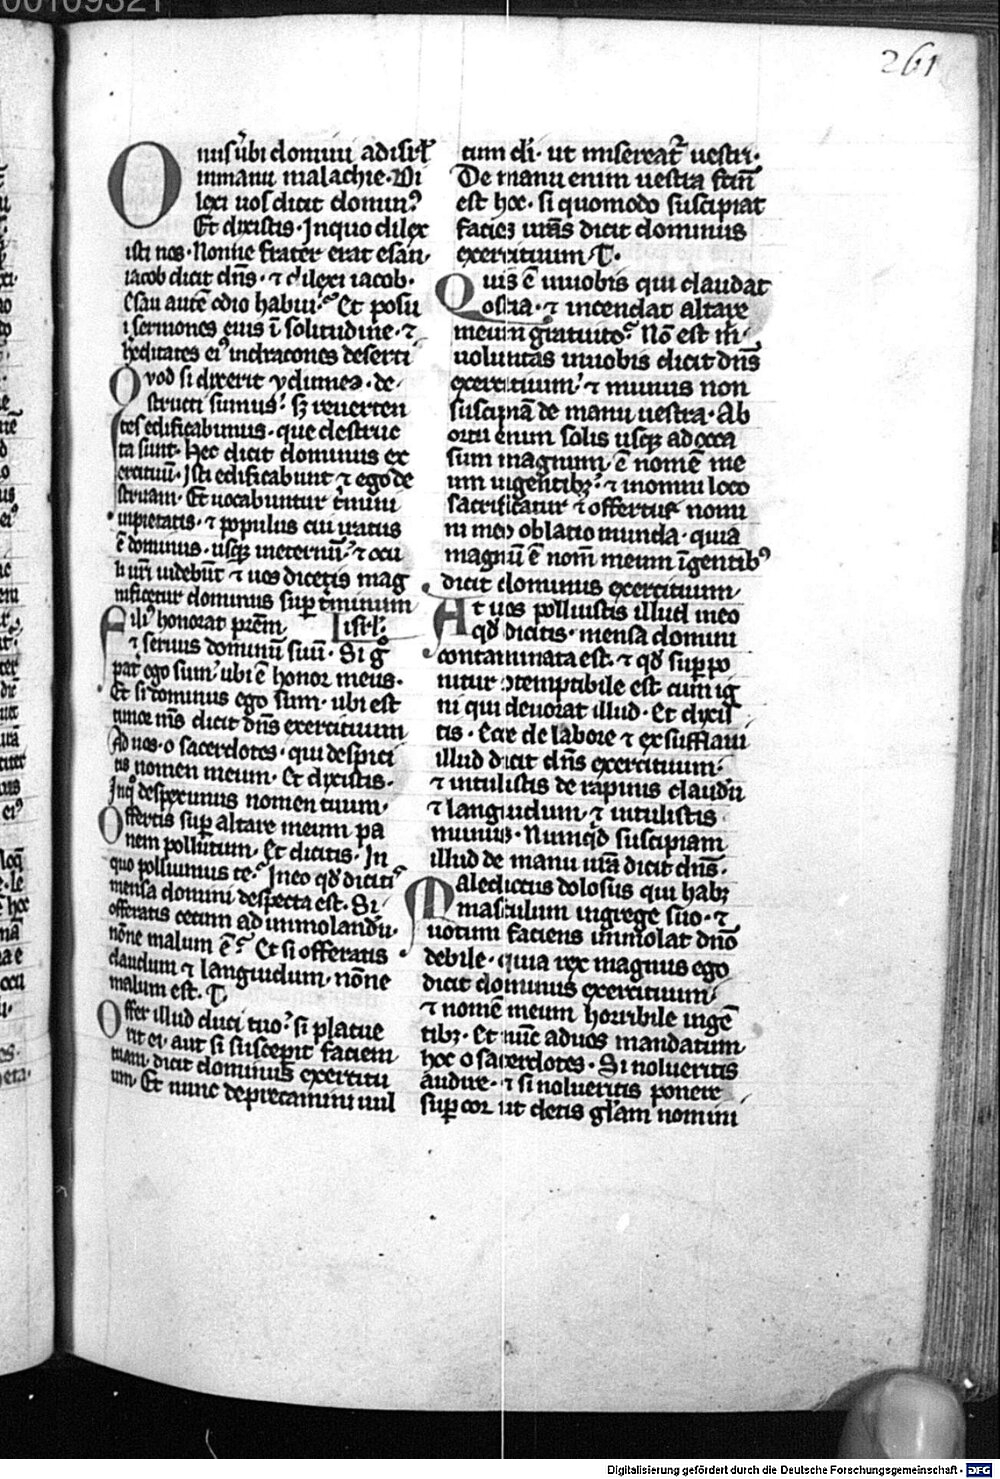 261
Onus ūbi domini ad isrl̄
in manu malachie. Di
lexi uos dicit domin⁹
Et dixistis. In quo dilex
isti nos. Nonne frater erat esau
iacob dicit dn̄s. ⁊ dilexi iacob.
Esau autē odio habui. Et posu
i sermones eius ī solitudine. ⁊
hēditates ei⁹ in dracones deserti
Quod si dixerit ydumea. de
structi sumus. sꝫ reuerten
tes edificabimus. que destruc
ta sunt. Hec dicit dominus ex
ercituū. Isti edificabunt ⁊ ego de
struam. Et uocabuntur t̄mini
inpietatis. ⁊ populus cui iratus
ē dominus. usqꝫ in eternū. ⁊ ocu
li ur̄i uidebūt ⁊ uos dicetis mag
nificetur dominus suꝑ t̄minum
Fili⁹ honorat pr̄em isrl̄.
⁊ seruus dominū suū. Si g̊
pat̄ ego sum. ubi ē honor meus.
Et si dominus ego sum. ubi est
timor m̄s dicit dn̄s exercituum
Ad uos. o sacerdotes. qui despici
tis nomen meum. Et dixistis.
In q̊ despeximus nomen tuum.
Offertis suꝑ altare meum pa
nem pollutum. Et dicitis. In
quo polluimus te. In eo qd̄ diciti⁹
mensa domini despecta est. Si
offeratis cecum ad immolandū.
nōne malum ē. Et si offeratis
claudum ⁊ languidum. nōne
malum est. T.
Offer illud duci tuo. si placue
rit ei. aut si susceꝑit faciem
tuam. dicit dominus exercitu
um. Et nunc deprecamini uul
tum di. ut misereat̄ uestri.
De manu enim uestra fc̄m
est hoc. si quomodo suscipiat
facieꝫ ur̄as dicit dominus
exercituum. T.
Quis ē in uobis qui claudat
ostia. ⁊ incendat altare
meum gratuito. Nō est m̄
uoluntas in uobis dicit dn̄s
exercituum. ⁊ munus non
suscipiā de manu uestra. Ab
ortu enim solis usqꝫ ad occa
sum magnum ē nomē me
um in gentibꝫ. ⁊ in omni loco
sacrificatur ⁊ offertur nomi
ni meo oblatio munda. quia
magnū ē nom̄ meum ī gentib⁹
dicit dominus exercituum
At uos polluistis illud in eo
qd̄ dicitis. mensa domini
contaminata est. ⁊ qd̄ suꝑpo
nitur ꝯtemptibile est cum ig
ni qui deuorat illud. Et dixis
tis. Ecce de labore ⁊ exsufflaui
illud dicit dn̄s exercituum.
⁊ intulistis de rapinis claudū
⁊ languidum. ⁊ intulistis
munus. Numqd̄ suscipiam
illud de manu ur̄a dicit dn̄s.
Maledictus dolosus qui habꝫ
masculum in grege suo. ⁊
uotum faciens immolat dn̄o
debile. quia rex magnus ego
dicit dominus exercituum.
⁊ nomē meum horribile in gē
tibꝫ. Et nūc ad uos mandatum
hoc o sacerdotes. Si nolueritis
audire. ⁊ si nolueritis ponere
suꝑ cor ut detis gl̄am nomini
Digitalisierung gefördert durch die Deutsche Forschungsgemeinschaft - DFG